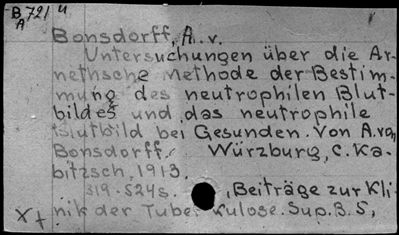 B 721 u
A
Bonsdorff, A. v.
Untersuchungen über die Ar-
nethsche Methode der Bestim-
mung des neutrophilen Blut-
bildes und das neutrophile
Blutbild bei Gesunden. Von A. von
Bonsdorff. Würzburg, C. Ka-
bitzsch, 1913.
319-524s. , Beiträge zur Kli-
nik der Tuberkulose. Sup. B. 5,